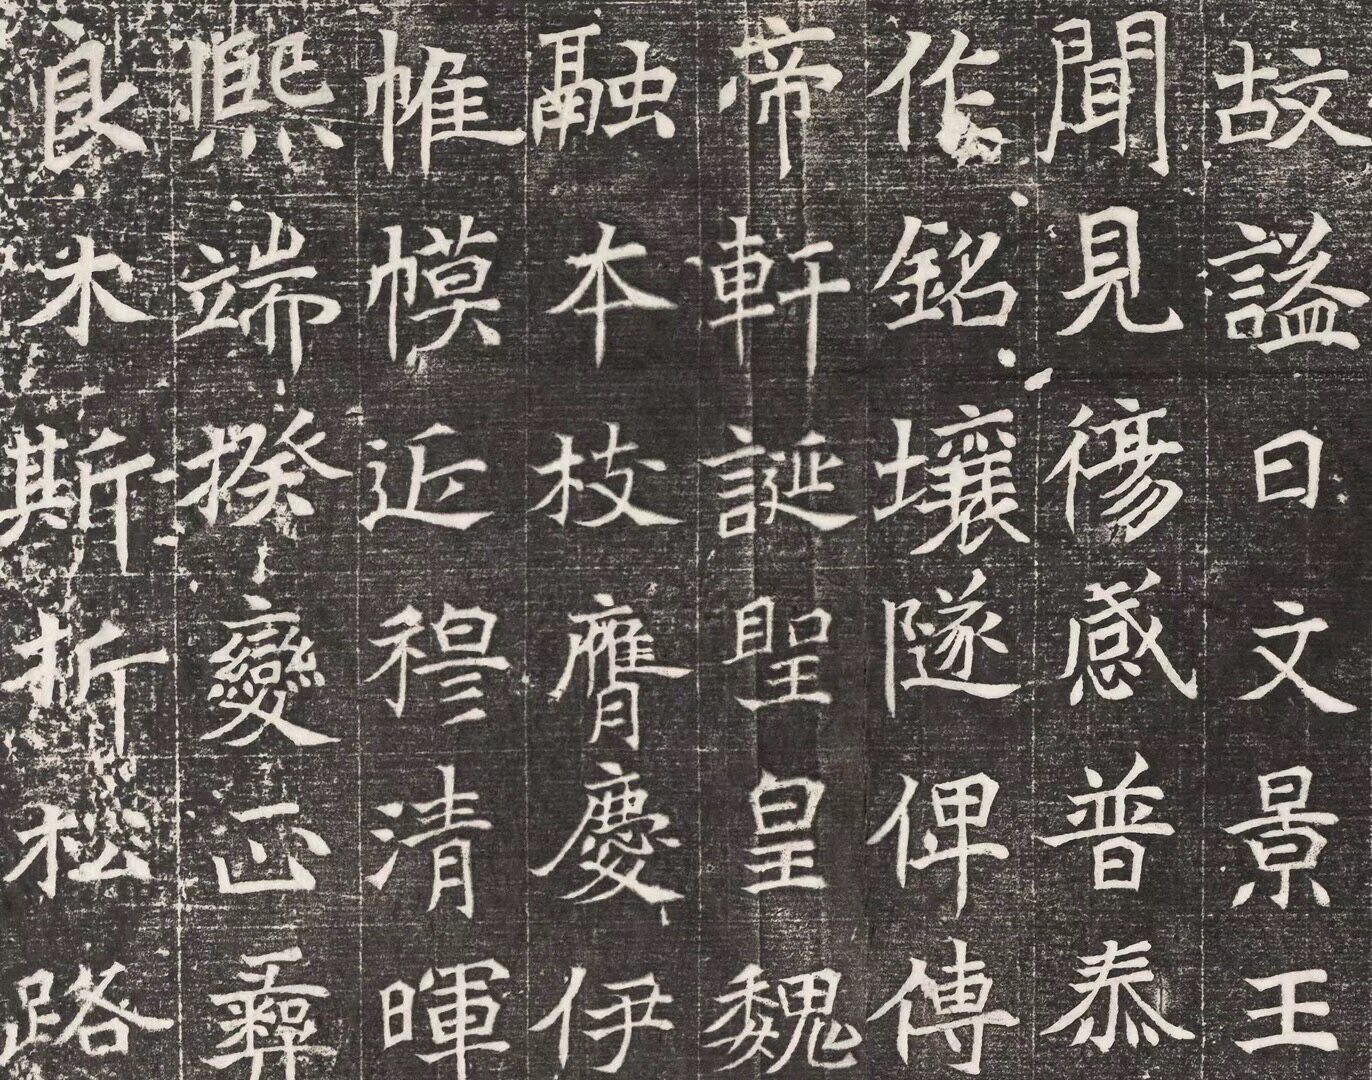 故謚曰文景王
聞見傷感普泰
作銘壤隧俾傳
帝軒誕聖皇魏
融本枝膺慶伊
帷幙近穆清暉
熈端揆變正彞
良木斯折松路